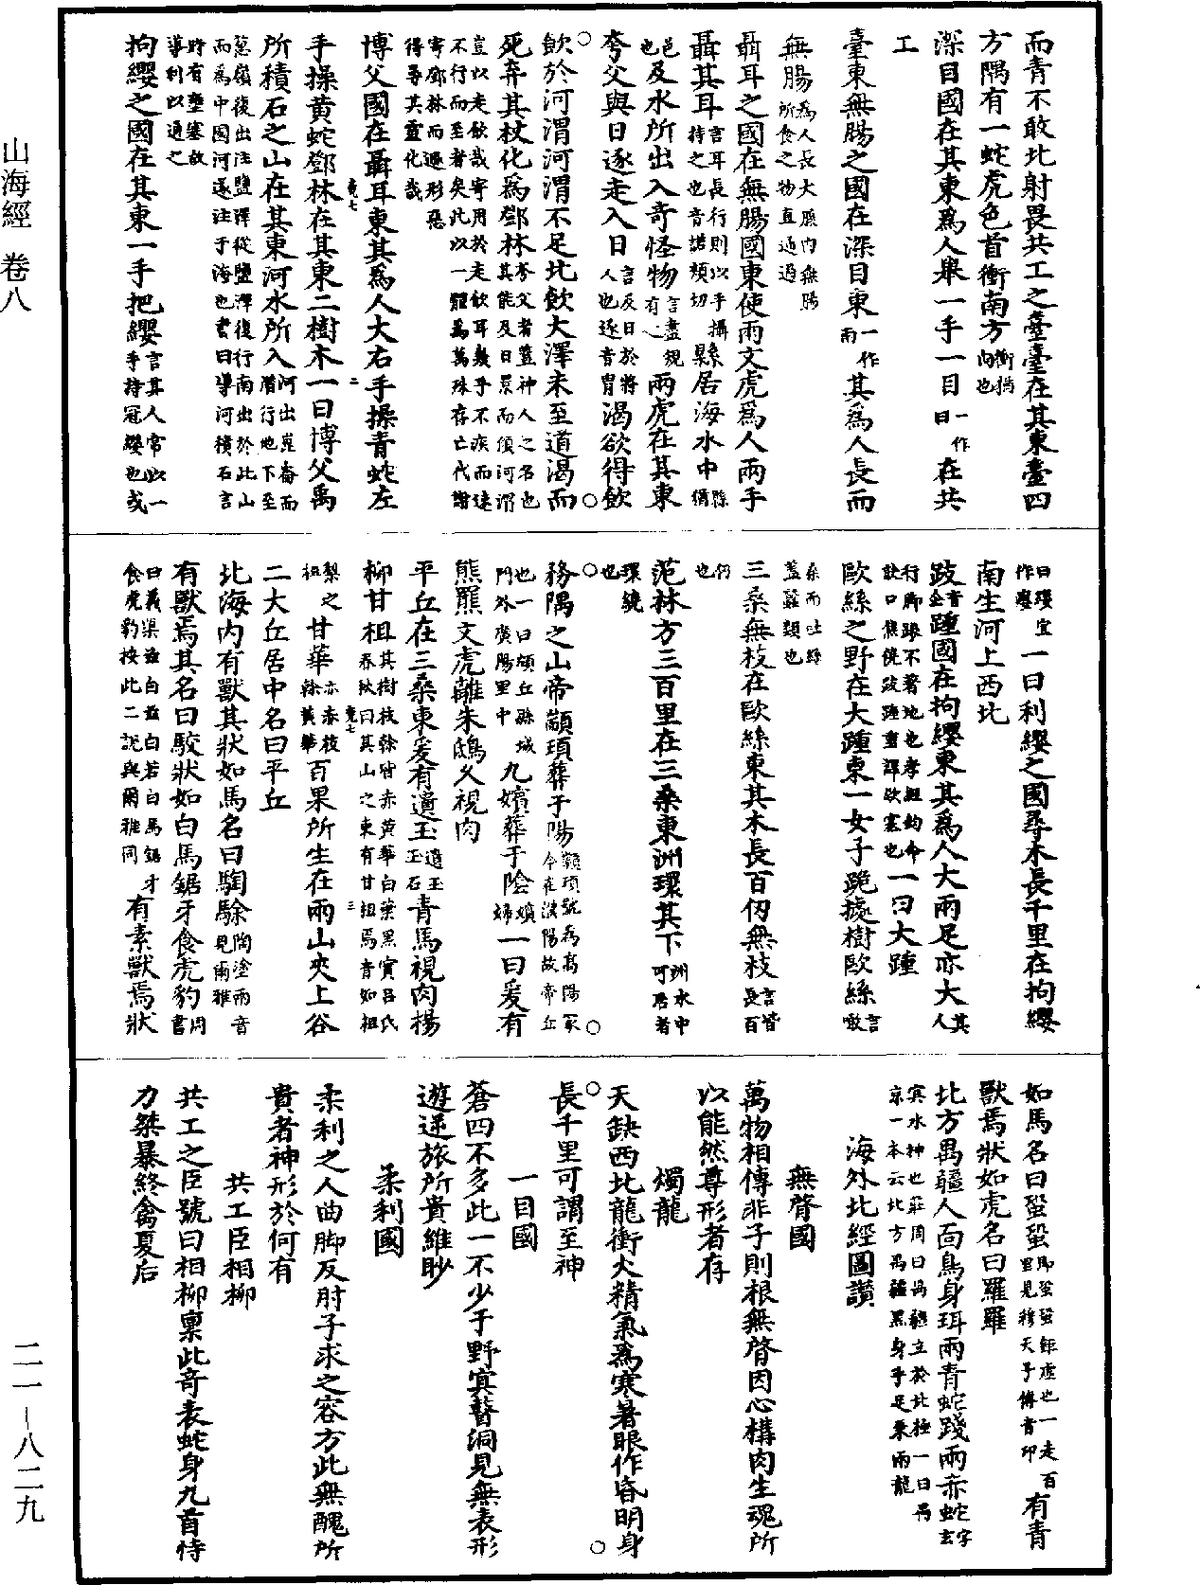 而青不敢北射畏共工之臺臺在其東臺四
方隅有一蛇虎色首衝南方衝猶向也
深目國在其東爲人舉一手一目一作曰在共
工
臺東無腸之國在深目東一作南其爲人長而
無腸爲人長大腹內無腸所食之物直通過
聶耳之國在無腸國東使兩文虎爲人兩手
聶其耳言耳長行則以手攝持之也音諾頰切縣居海水中縣猶邑
也及水所出入奇怪物言盡規有之兩虎在其東
夸父與日逐走入日言及日於將入也逐音冑渴欲得飲
飲於河渭河渭不足北飲大澤未至道渴而
死弃其杖化爲鄧林夸父者蓋神人之名也其能及日景而傾河渭
豈以走飲哉寄用於走飲耳幾乎不疾而速不行而至者矣此以一體爲萬殊存亡代謝
寄鄧林而遯形惡得尋其靈化哉
博父國在聶耳東其爲人大右手操青蛇左
手操黃蛇鄧林在其東二樹木一曰博父禹
所積石之山在其東河水所入河出崑崙而潛行地下至
葱嶺復出注鹽澤從鹽澤復行南出於此山而爲中國河遂注于海也書曰導河積石言
時有壅塞故導利以通之
拘纓之國在其東一手把纓言其人常以一手持冠纓也或
曰纓宜作癭一曰利纓之國尋木長千里在拘纓
南生河上西北
跂音企踵國在拘纓東其爲人大兩足亦大其人
行脚跟不著地也孝經鉤命訣曰焦僥跂踵重譯欵塞也一曰大踵
歐絲之野在大踵東一女子跪據樹歐絲言噉
桑而吐絲蓋蠶類也
三桑無枝在歐絲東其木長百仞無枝言皆長百
仞也
范林方三百里在三桑東洲環其下洲水中可居者
環繞也
務隅之山帝顓頊葬于陽顓頊號爲高陽冢今在濮陽故帝丘
也一曰頓丘縣城門外廣陽里中九嬪葬于陰嬪婦一曰爰有
熊羆文虎離朱鴟久視肉
平丘在三桑東爰有遺玉遺玉玉石青馬視肉楊
柳甘柤其樹枝榦皆赤黃華白葉黑實呂氏春秋曰其山之東有甘柤焉音如柤
梨之柤甘華亦赤枝榦黃華百果所生在兩山夾上谷
二大丘居中名曰平丘
北海內有獸其狀如馬名曰騊駼陶塗兩音見爾雅
有獸焉其名曰駮狀如白馬鋸牙食虎豹周書
曰義渠茲白茲白若白馬鋸牙食虎豹按此二說與爾雅同有素獸焉狀
如馬名曰蛩蛩即蛩蛩鉅虛也一走百里見穆天子傳音邛有青
獸焉狀如虎名曰羅羅
北方禺疆人面鳥身珥兩青蛇踐兩赤蛇字玄
冥水神也莊周曰禺疆立於北極一曰禺京一本云北方禺疆黑身手足乘兩龍
海外北經圖讚
無䏿國
萬物相傳非子則根無䏿因心構肉生魂所
以能然尊形者存
燭龍
天缺西北龍銜火精氣爲寒暑眼作昏明身
長千里可謂至神
一目國
蒼四不多此一不少于野冥瞽洞見無表形
遊逆旅所貴維眇
柔利國
柔利之人曲脚反肘子求之容方此無醜所
貴者神形於何有
共工臣相柳
共工之臣號曰相柳稟此奇表蛇身九首恃
力桀暴終禽夏后
山海經 卷八
二一—八二九